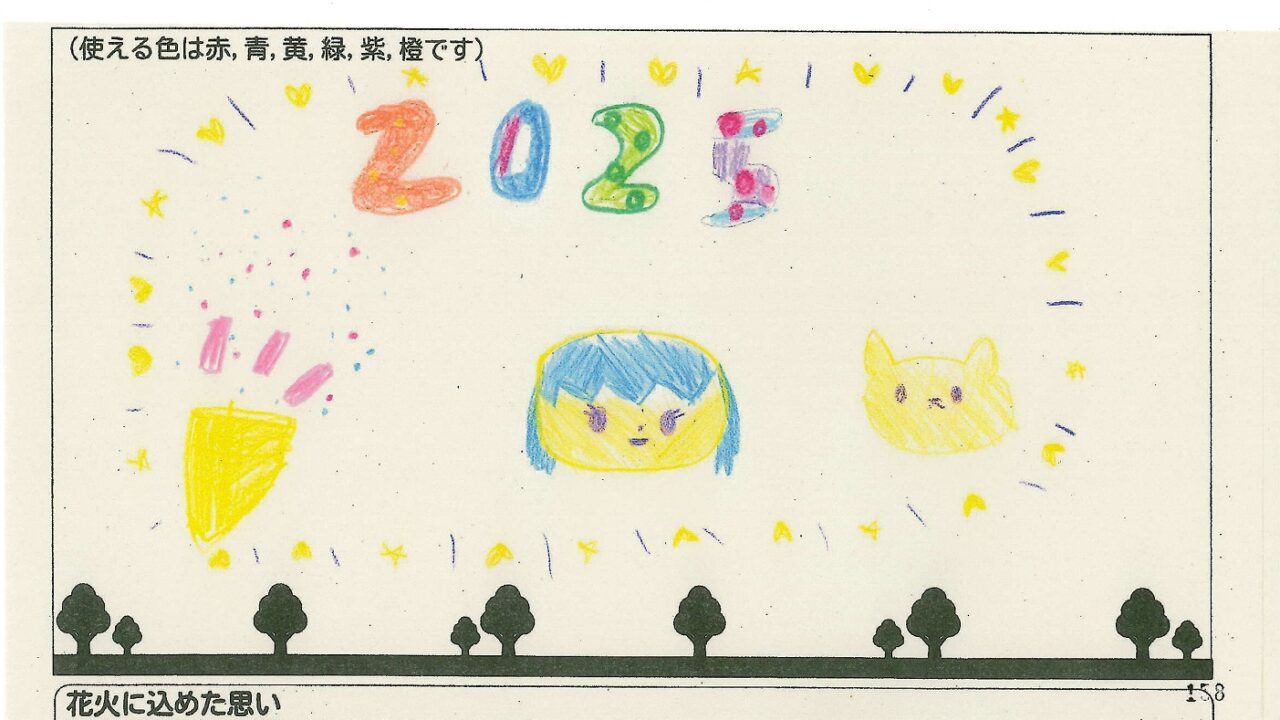 (使える色は赤, 青, 黄, 緑, 紫, 橙です)
2025
花火に込めた思い
158